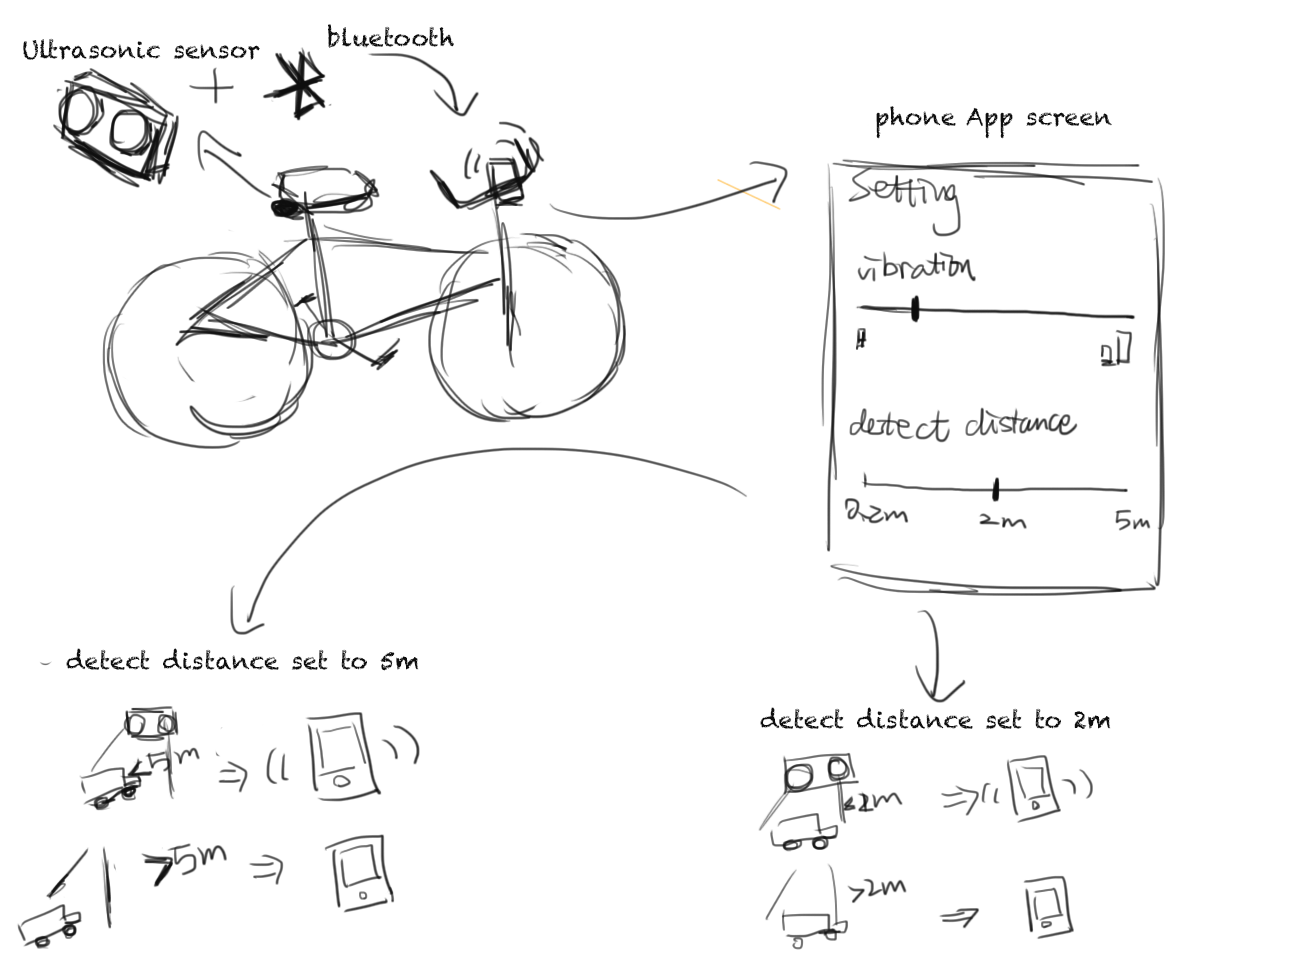 Ultrasonic sensor
+
bluetooth
phone App screen
Setting
vibration
detect distance
0.2m 2m 5m
detect distance set to 5m
<5m ⇒
>5m ⇒
detect distance set to 2m
<2m ⇒
>2m ⇒